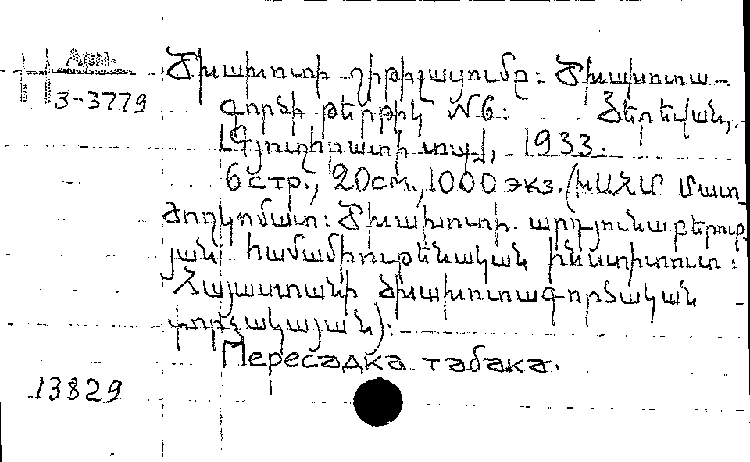 Арм.
3-3779
Ծխախոտի շիթիլացումը: Ծխախոտա-
գործի թերթիկ №6: Յերեվան,
[Գյուղհրատի տպ], 1933.
6 стр., 20 см., 1000 экз. (ԽՍՀՄ Մատ
ժողկոմատ: Ծխախոտի արդյունաբերութ
յան համամիութենական ինստիտուտ:
Հայաստանի ծխախոտագործական
փորձակայան):
Пересадка табака.
13829